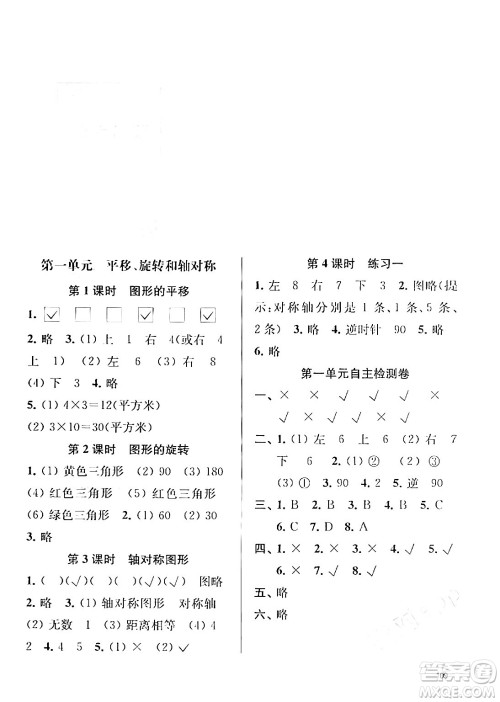 第一单元　平移、旋转和轴对称
第 1 课时　图形的平移
1. ☑ □ □ ☑ □ ☑
2. 略　3. (1) 右　4(或右　4
上　1)　(2) 左　6　(3) 右　8
(4) 下　3　4. 略
5. (1) 4×3=12(平方米)
(2) 3×10=30(平方米)
第 2 课时　图形的旋转
1. (1) 黄色三角形　(2) 90　(3) 180
(4) 红色三角形　2. (1) 红色三角形
(2) 绿色三角形　(3) 90　(4) 90
3. 略
第 3 课时　轴对称图形
1. (　)(√)(　)(√)(√)　图略
2. 略　3. (1) 轴对称图形　对称轴
(2) 无数　1　(3) 距离相等　(4) 4
2　4. 4　5　5. 略
第 4 课时　练习一
1. 左　8　右　7　下　3　2. 图略(提
示:对称轴分别是 1 条、1 条、5 条、
2 条)　3. 略　4. 逆时针　90　5. 略
6. 略
第一单元自主检测卷
一、×　×　√　√　×
√　√　√　×　×
二、1. (1) 左　6　上　6　(2) 右　7
下　6　2. (1) ①　(2) ②
3. ①　90　4. 90　5. 逆　90
三、1. B　2. A　3. C　4. B　5. B
6. C　7. D　8. B
四、1. ×　2. √　3. ×　4. √　5. √
五、略
六、略
答案圈